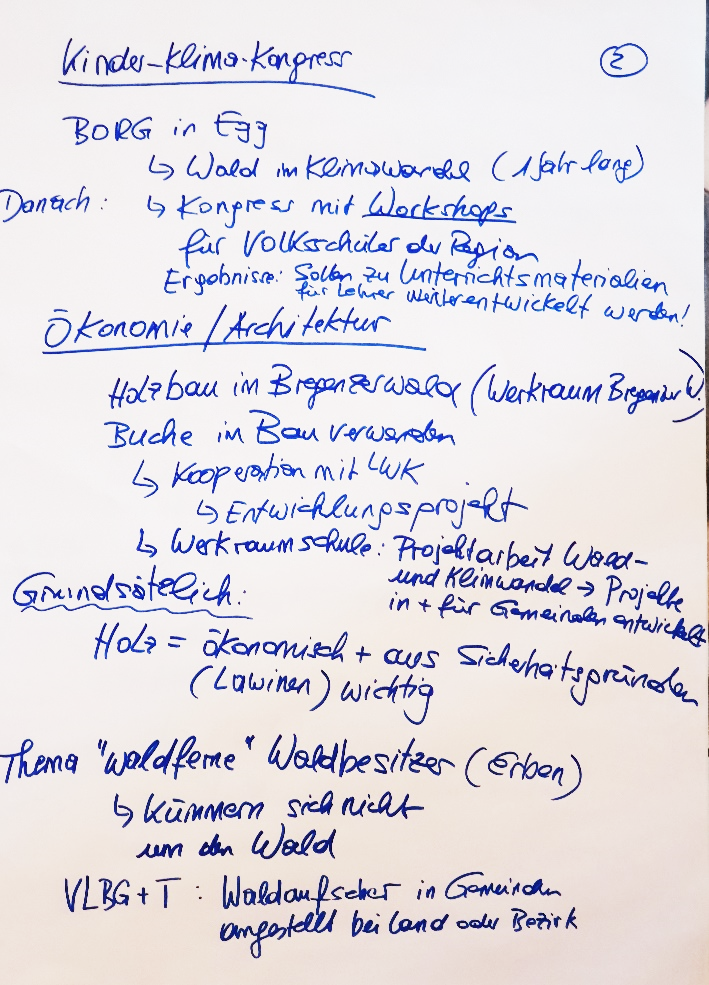 Kinder-Klima-Kongress
2
BORG in Egg
↳ Wald im Klimawandel (1 Jahr lang)
Danach: ↳ Kongress mit Workshops
für Volksschüler der Region
Ergebnisse: Sollen zu Unterrichtsmaterialien
für Lehrer weiterentwickelt werden!
Ökonomie/Architektur
Holzbau im Bregenzerwald (Werkraum Bregenzer W.)
Buche im Bau verwenden
↳ Kooperation mit LWK
↳ Entwicklungsprojekt
↳ Werkraumschule: Projektarbeit Wald-
und Klimwandel → Projekte
in + für Gemeinden entwickelt
Grundsätzlich:
Holz = ökonomisch + aus Sicherheitsgründen
(Lawinen) wichtig
Thema "waldferne" Waldbesitzer (Erben)
↳ Kümmern sich nicht
um den Wald
VLBG + T : Waldaufseher in Gemeinden
angestellt bei Land oder Bezirk